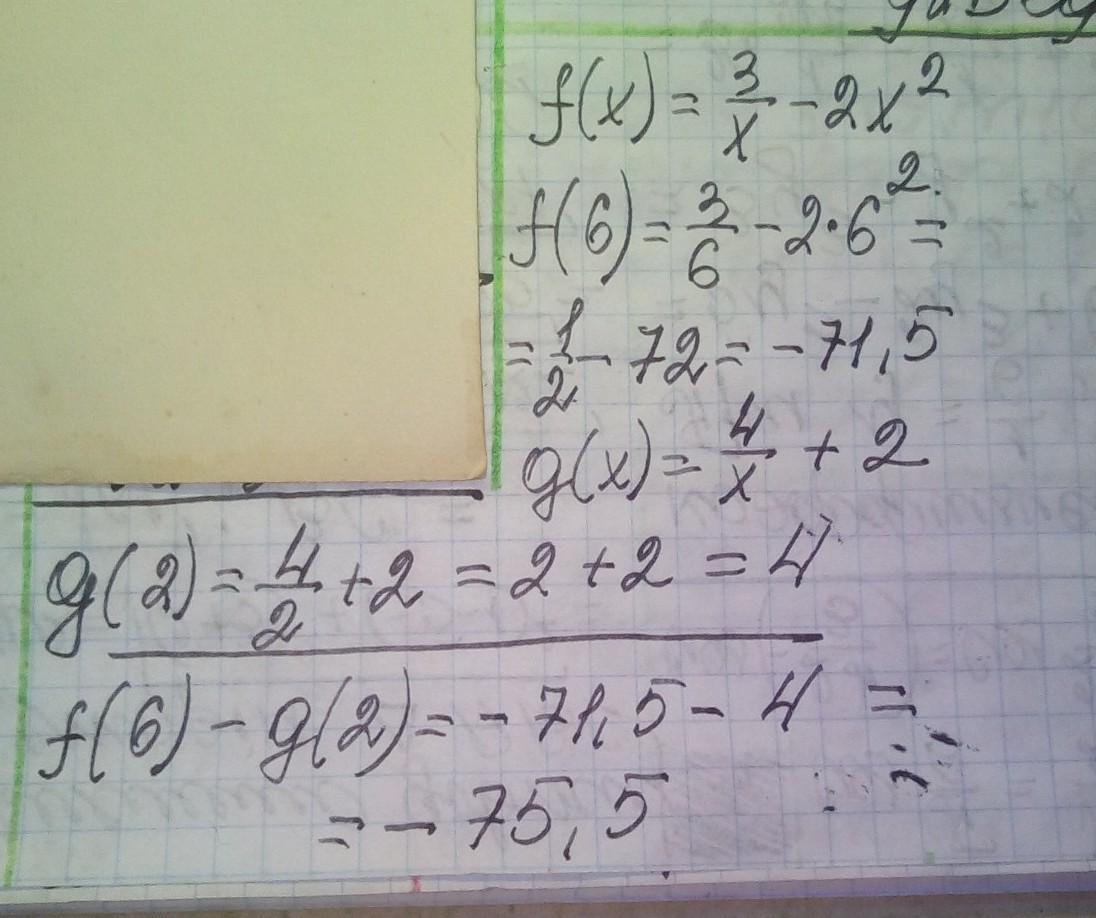 f(x) = 3/x - 2x²
f(6) = 3/6 - 2·6² =
= 1/2 - 72 = - 71,5
g(x) = 4/x + 2
g(2) = 4/2 + 2 = 2 + 2 = 4
f(6) - g(2) = - 71,5 - 4 =
= - 75,5